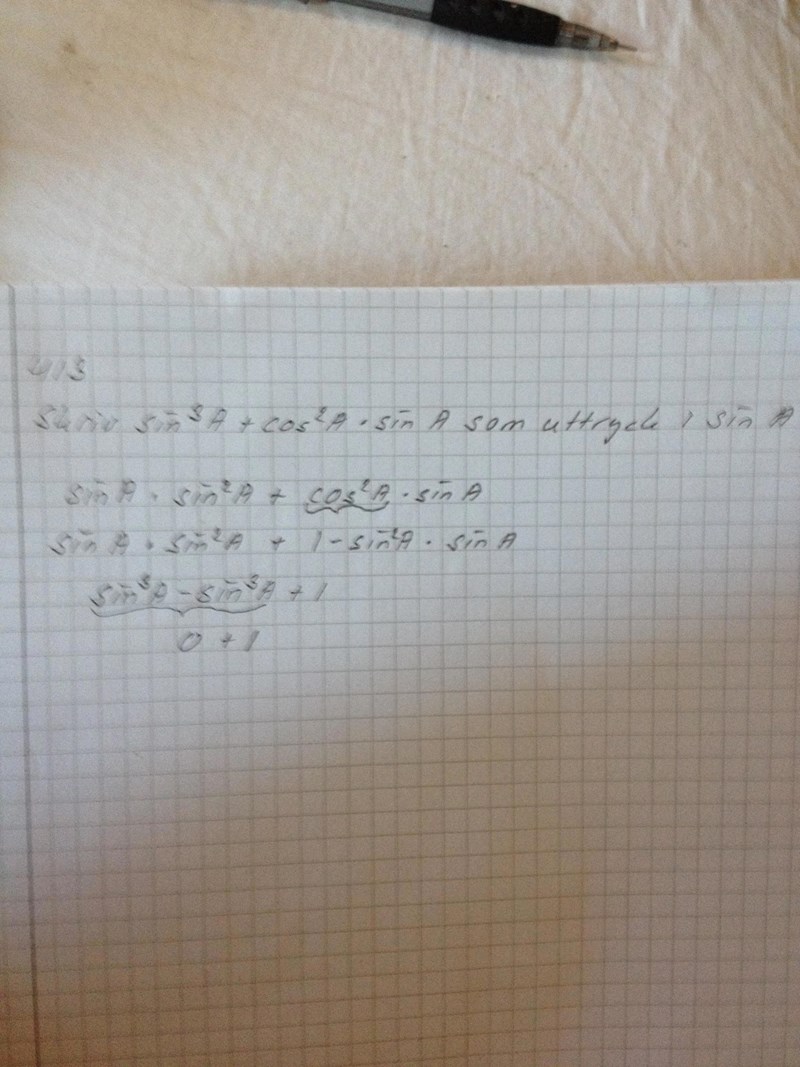 413
Skriv sin³A + cos²A · sin A som uttryck i sin A
sin A · sin²A + cos²A · sin A
sin A · sin²A + 1 - sin²A · sin A
sin³A - sin³A + 1
0 + 1